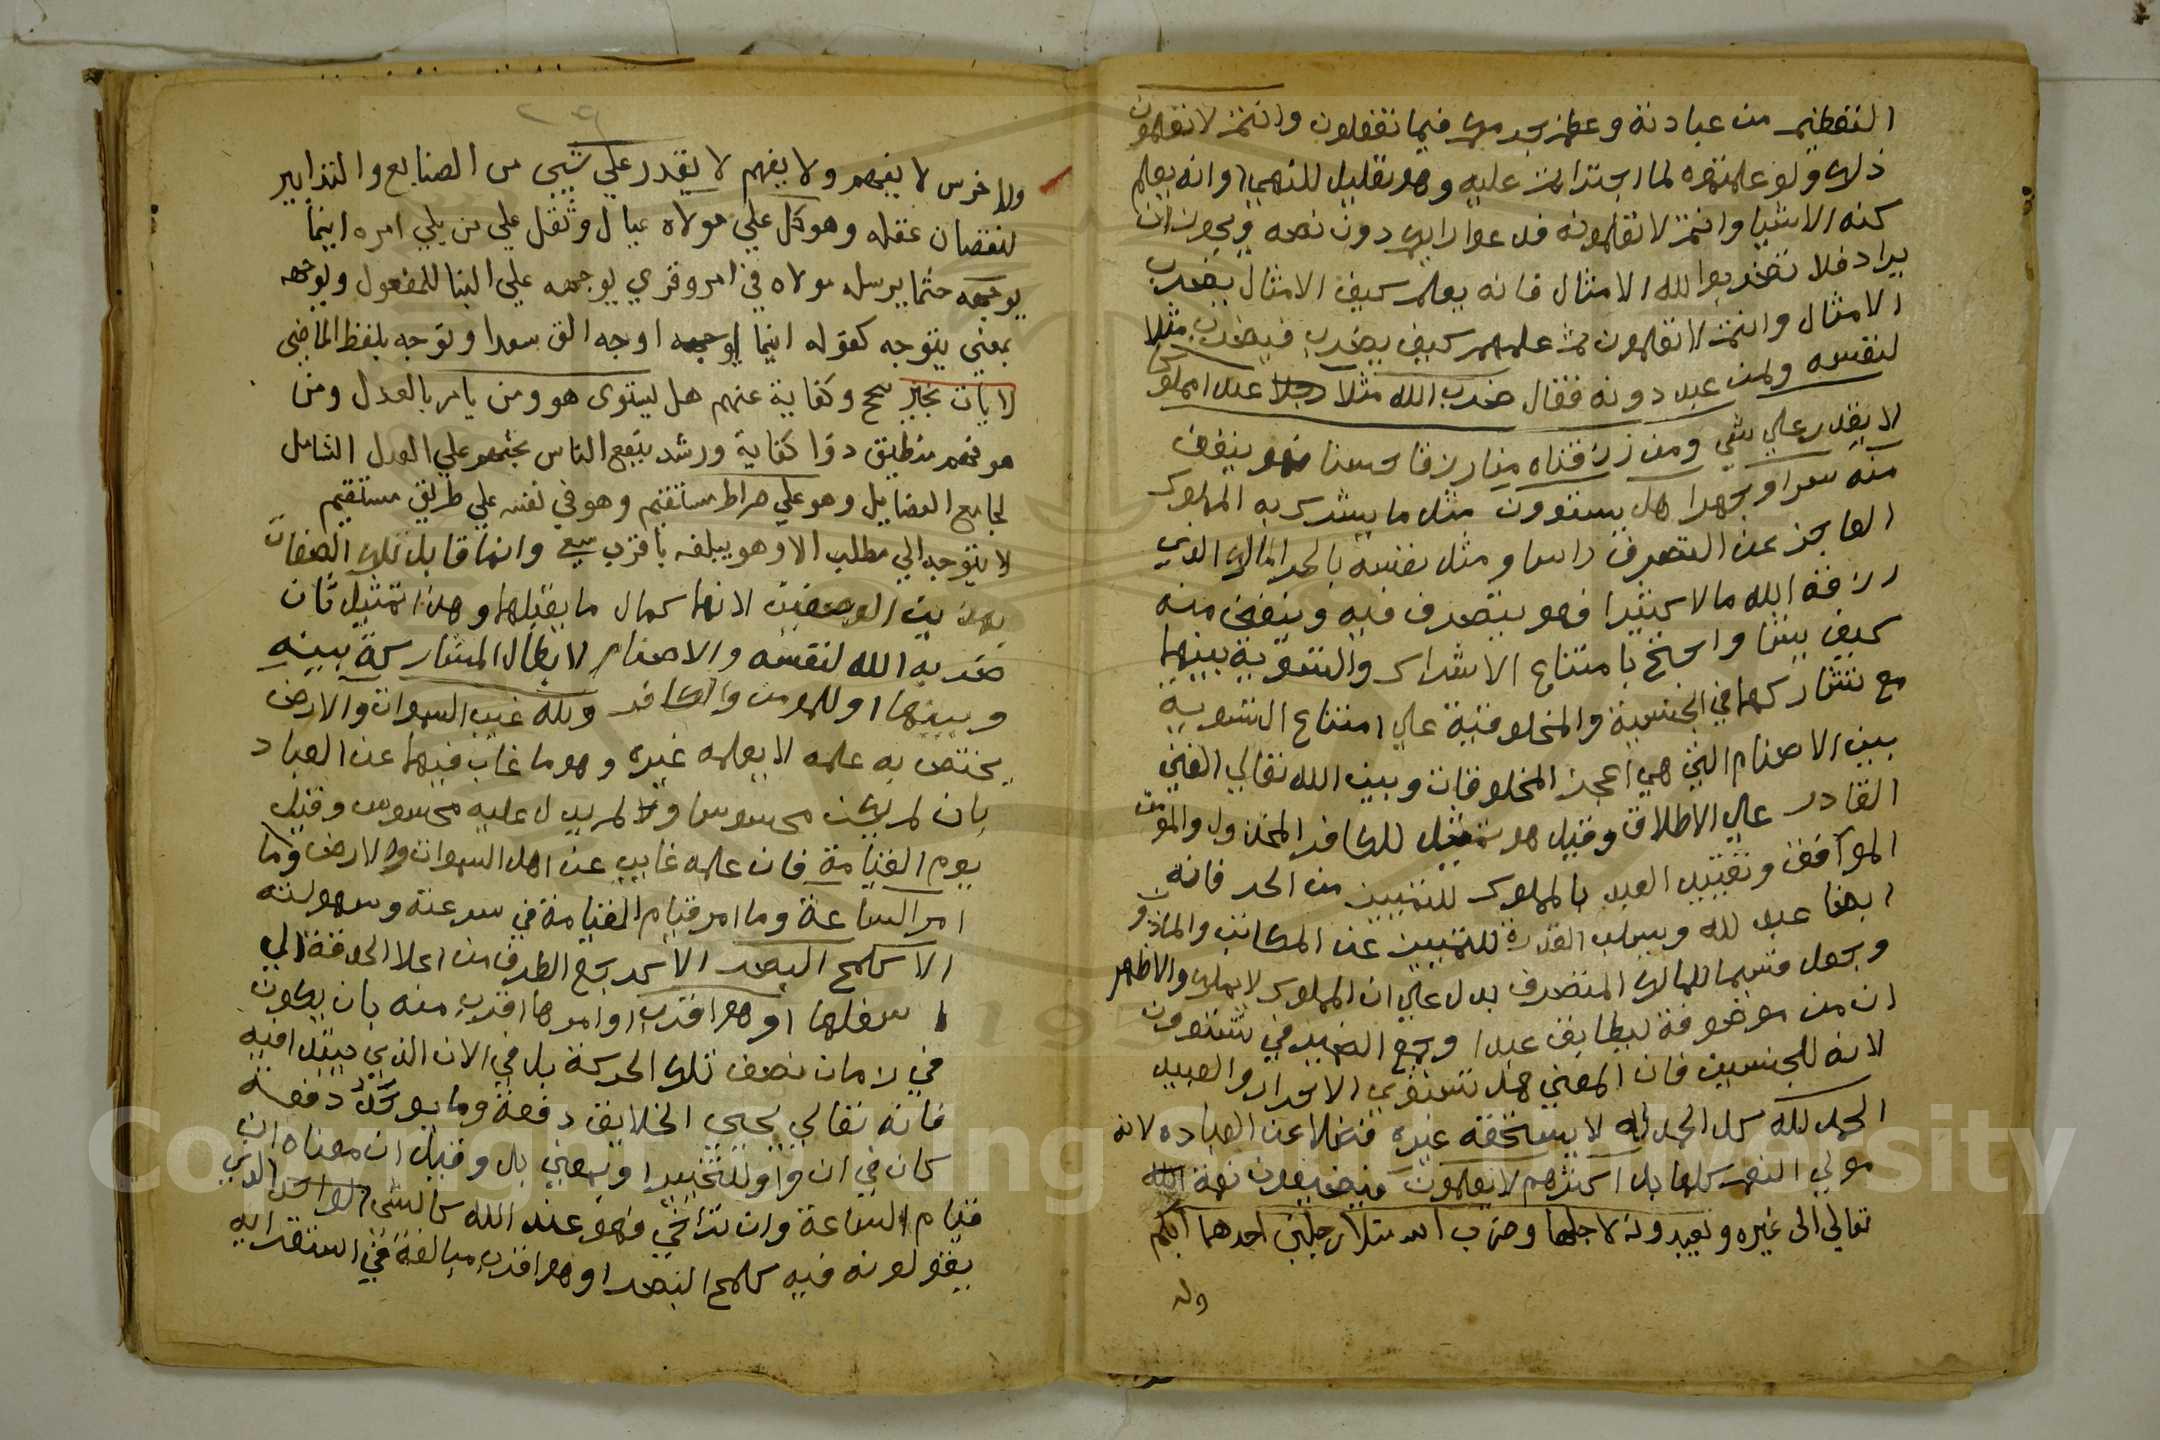 التعظيم من عبادته وعظم جرمهم فيما تفعلون وانتم لا تعلمون
ذلك ولو علمتموه لما اجتراتم عليه وهو تعليل للنهي او انه يعلم
كنه الاشيا وانتم لا تعلمونه فدعوا رايكم دون نصه ويجوز ان
يراد فلا تضربوا لله الامثال فانه يعلم كيف الامثال يضرب
الامثال وانتم لا تعلمون ثم علمهم كيف يضرب فيضرب مثلا
لنفسه ولمن عبد دونه فقال ضرب الله مثلا عبدا مملوكا
لا يقدر علي شي ومن رزقناه منا رزقا حسنا فهو ينفق
منه سرا وجهرا هل يستوون مثل ما يشرك به المملوك
العاجز عن التصرف راسا ومثل نفسه بالحر المالك الذي
رزقه الله مالا كثيرا فهو يتصرف فيه وينفق منه
كيف يشا واحتج بامتناع الاشراك والتسوية بينهما
مع تشاركهما في الجنسية والمخلوقية علي امتناع التسوية
بين الاصنام التي هي اعجز المخلوقات وبين الله تعالي الغني
القادر علي الاطلاق وقيل هو تمثيل للكافر المخذول والمومن
الموافق وتقييد العبد بالمملوك للتمييز من الحر فانه
ايضا عبد لله وبسلب القدرة للتمييز عن المكاتب والماذون
وجعل قسيما للمالك المتصرف يدل علي ان المملوك لا يملك والاظهر
ان من موصوفة ليطابق عبدا وجمع الضمير في يستوون
لانه للجنسين فان المعني هل تستوي الاحرار والعبيد
الحمد لله كل الحمد له لا يستحقه غيره فضلا عن العبادة لانه
مولي النعم كلها بل اكثرهم لا يعلمون فيضيفون نعمة الله
تعالي الى غيره ويعبدونه لاجلها وضرب الله مثلا رجلين احدهما ابكم
ولد
ولد اخرس لا يفهم ولا يفهم لا يقدر علي شيي من الصنايع والتدابير
لنقصان عقله وهو كل علي مولاه عيال وثقل علي من يلي امره اينما
يوجهه حثما يرسله مولاه في امر وقري يوجهه علي البنا للمفعول ويوجهه
بمعني يتوجه كقوله اينما اوجه الق سعدا وتوجه بلفظ الماضي
لا يات بخير نجح وكفاية عنهم هل يستوى هو ومن يامر بالعدل ومن
هو فهم منطيق ذوا كفاية ورشد ينفع الناس بحثهم علي العدل الشامل
لجامع الفضايل وهو علي صراط مستقيم وهو في نفسه علي طريق مستقيم
لا يتوجه الي مطلب الا وهو يبلغه باقرب سعي وانما قابل تلك الصفات
بهذين الوصفين لانهما كمال ما يقابلها وهذا تمثيل ثان
ضربه الله لنفسه والاصنام لابطال المشاركة بينه
وبينها او للمومن والكافر ولله غيب السموات والارض
يختص به علمه لا يعلمه غيره وهو ما غاب فيهما عن العباد
بان لم يكن محسوسا ولم يدل عليه محسوس وقيل
يوم القيامة فان علمه غايب عن اهل السموات والارض وما
امر الساعة وما امر قيام القيامة في سرعته وسهولته
الا كلمح البصر الا كرجع الطرف من اعلا الحدقة الي
اسفلها او هو اقرب او امرها اقرب منه بان يكون
في زمان نصف تلك الحركة بل في الان الذي يبتدا فيه
فانه تعالي يحيي الخلايق دفعة وما يوجد دفعة
كان في ان واو للتخيير او بمعني بل وقيل ان معناه ان
قيام الساعة وان تراخي فهو عند الله كالشي الواحد الذي
يقولونه فيه كلمح البصر او هو اقرب مبالغة في استقرابه
Copyright © King Saud University